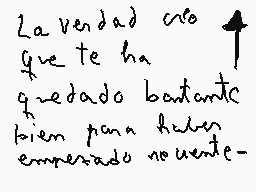 La verdad creo
que te ha
quedado bantante
bien para haber
empezado recuente-